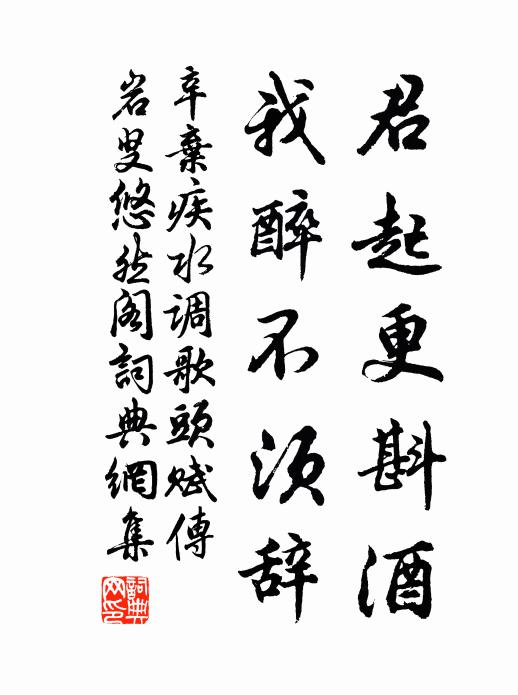 君起更斟酒
我醉不须辞
辛棄疾水调歌頭赋傅
岩叟悠然阁詞典網集
詞典
网印